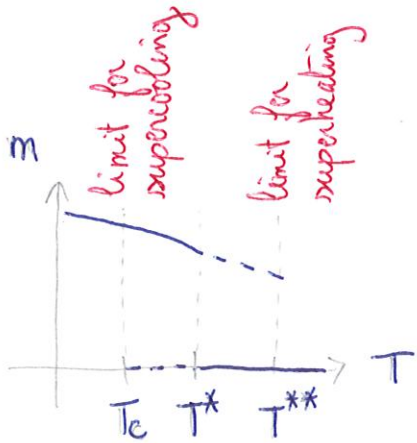 limit for
supercooling
limit for
superheating
m
T
T_c
T*
T**